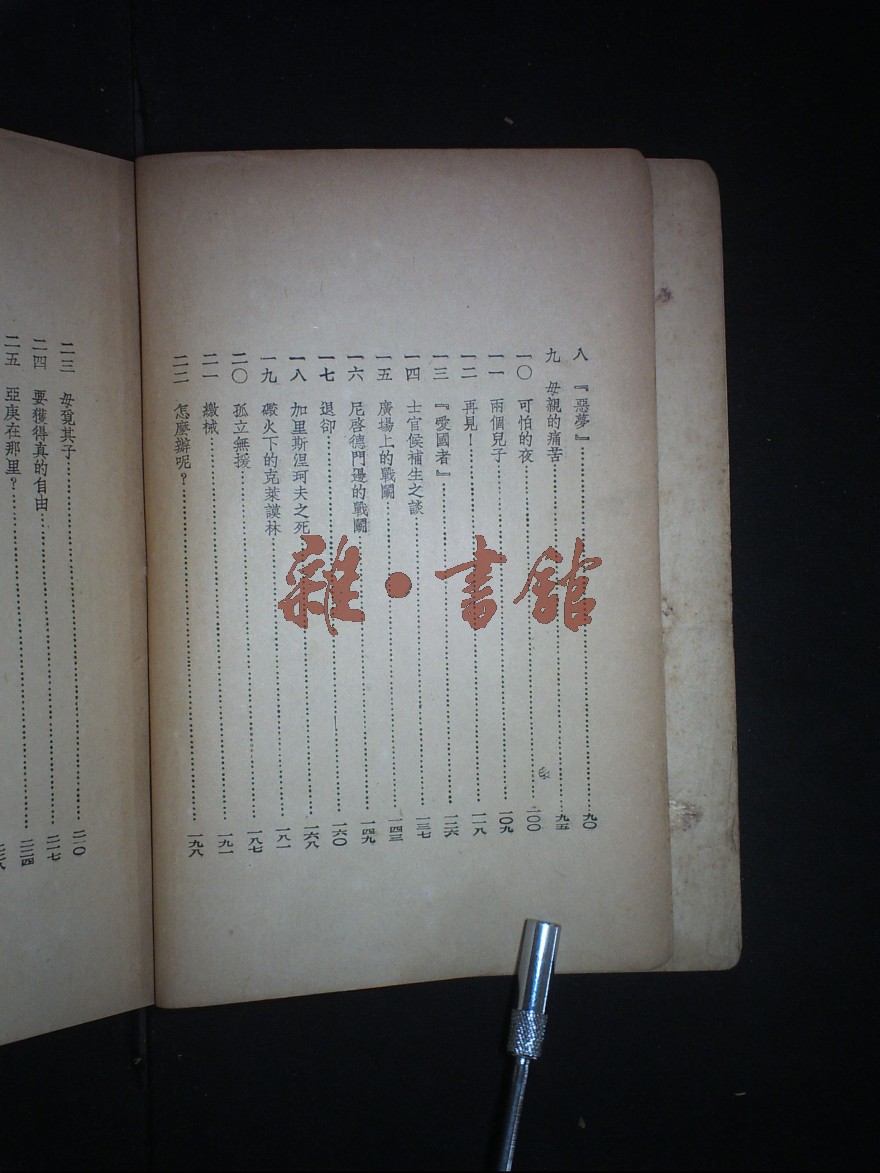 八 『惡夢』……九〇
九 母親的痛苦……九五
一〇 可怕的夜……一〇〇
一一 兩個兒子……一〇九
一二 再見！……一一八
一三 『愛國者』……一二六
一四 士官候補生之談……一三七
一五 廣場上的戰鬭……一四三
一六 尼啓德門邊的戰鬭……一四九
一七 退却……一六〇
一八 加里斯涅珂夫之死……一六八
一九 礮火下的克萊謨林……一八一
二〇 孤立無援……一八七
二一 繳械……一九一
二二 怎麼辦呢？……一九八
二三 母覓其子……二一〇
二四 要獲得真的自由……二一七
二五 亞庚在那里？……二二四
雜·書館